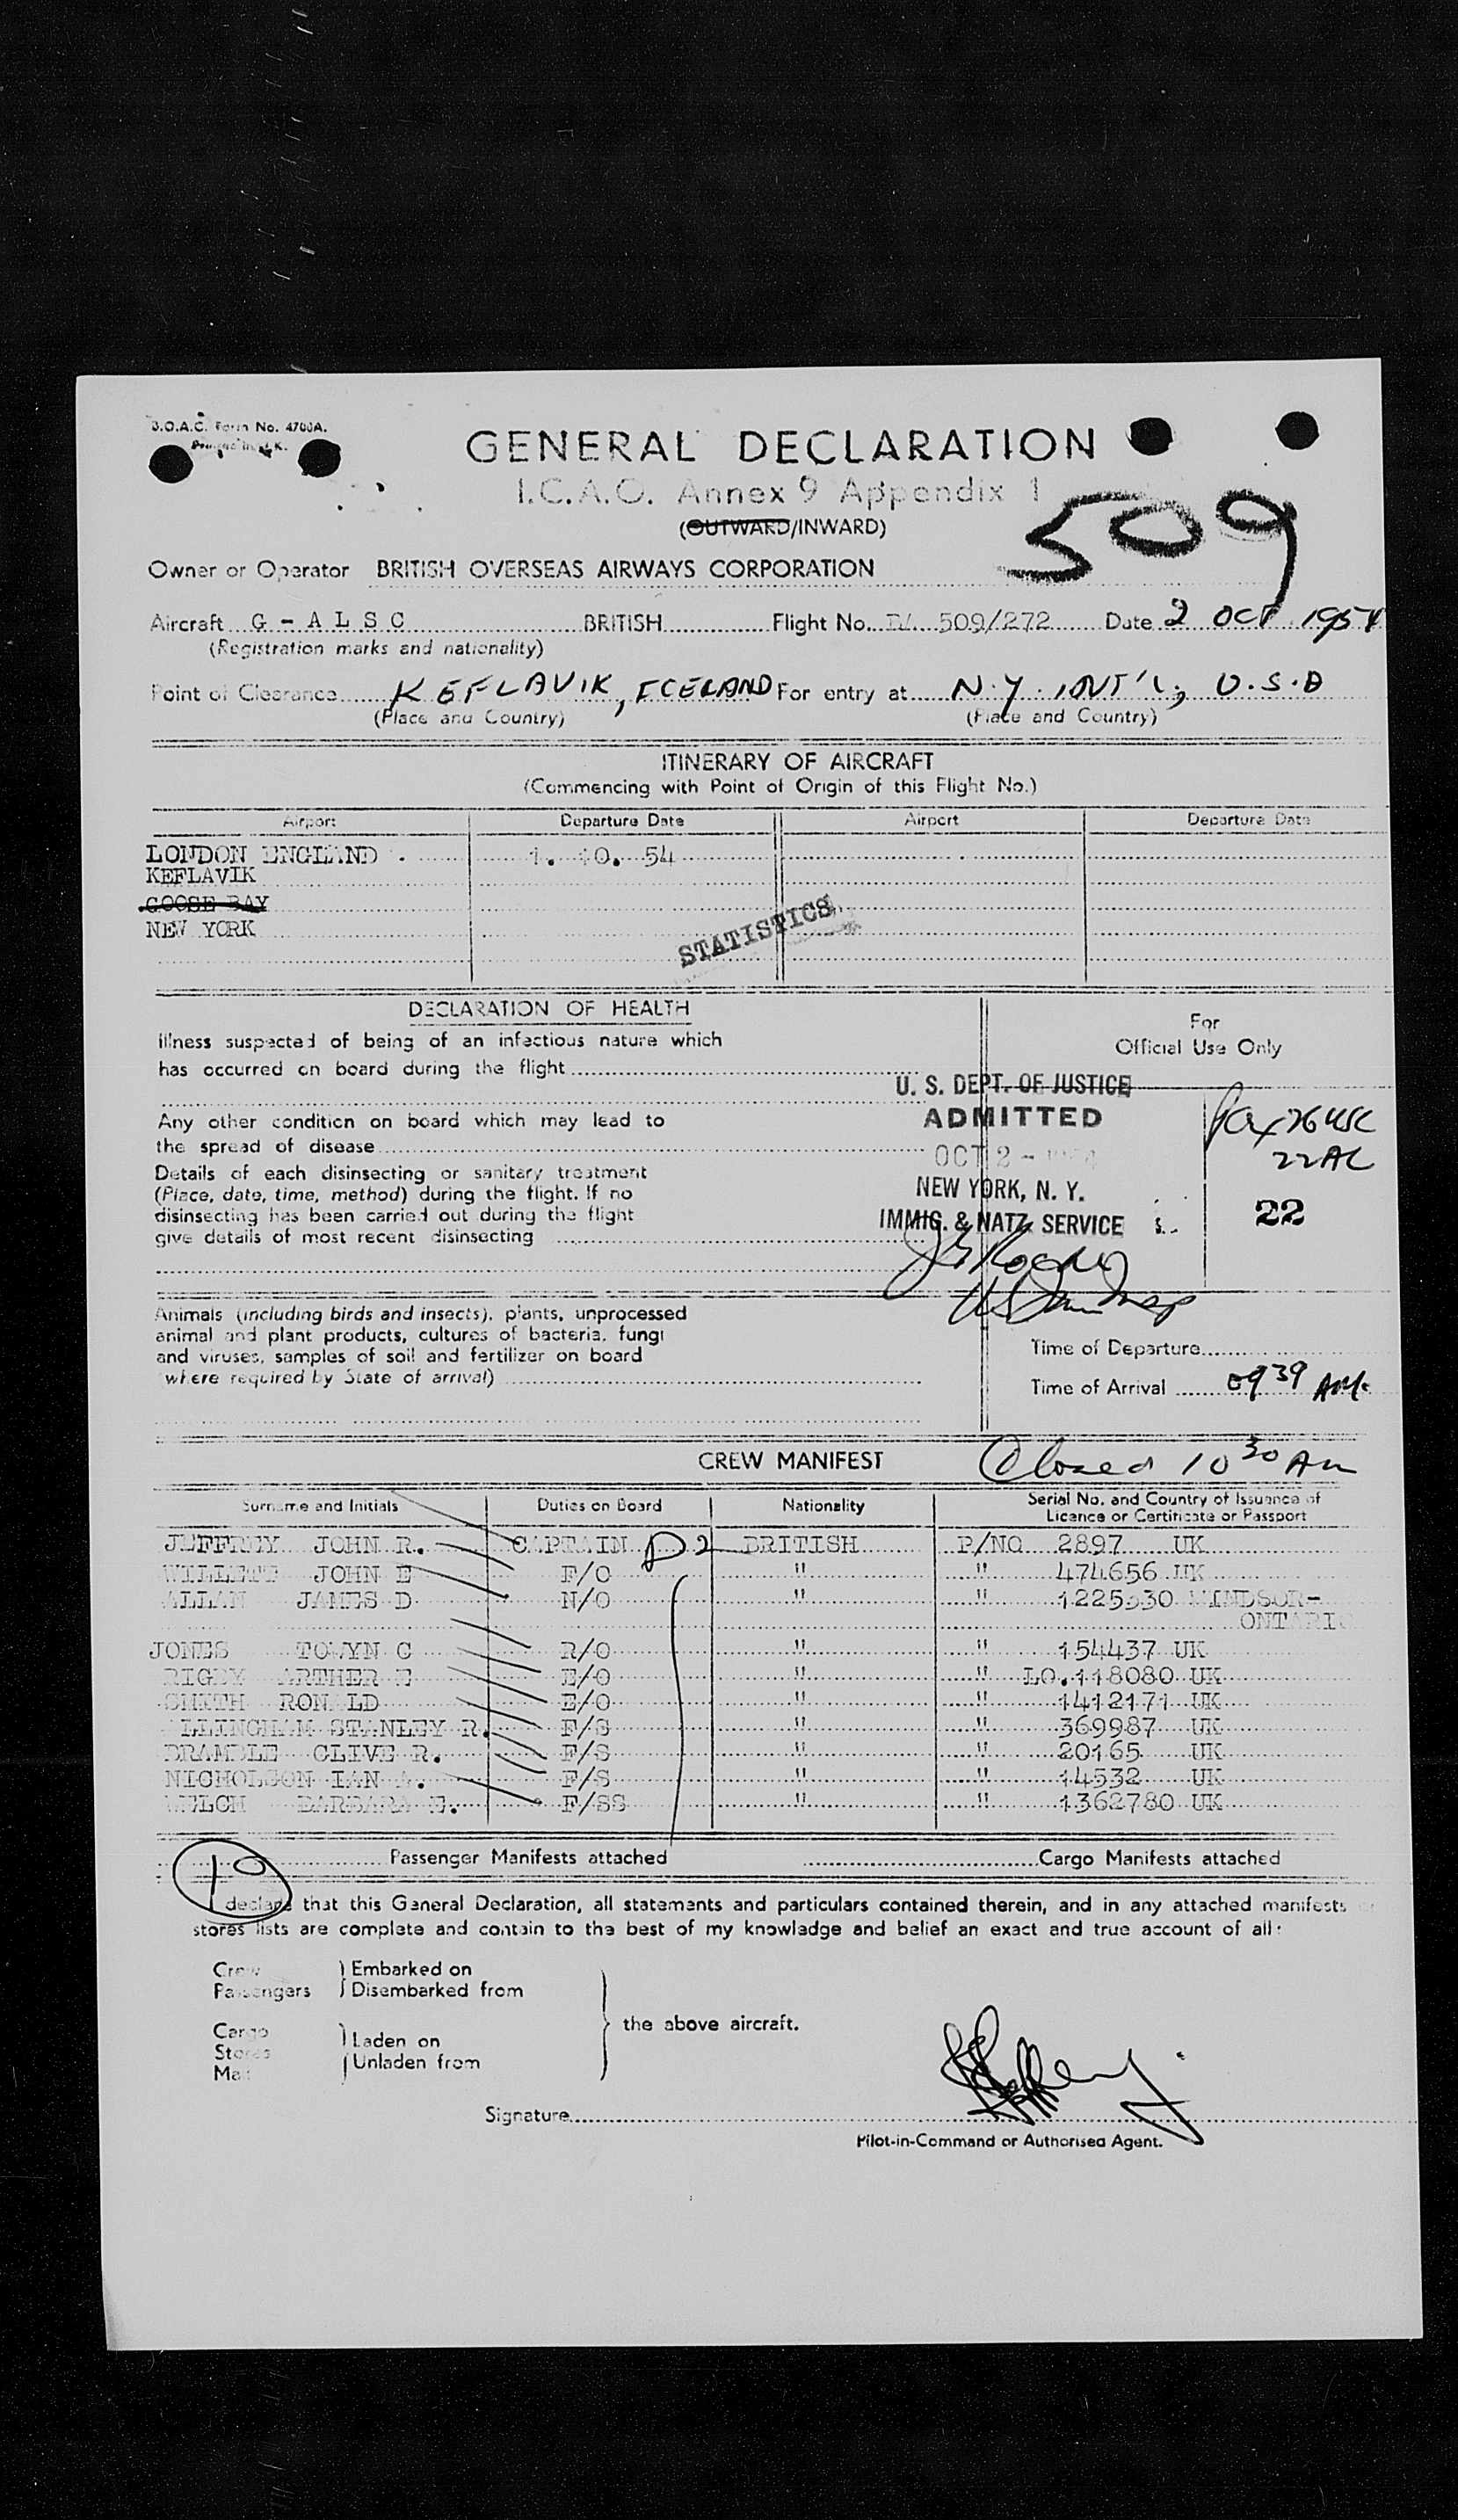 B.O.A.C. Form No. 4700A.
GENERAL DECLARATION
I.C.A.O. Annex 9 Appendix 1
(OUTWARD/INWARD)
509
Owner or Operator BRITISH OVERSEAS AIRWAYS CORPORATION
Aircraft G - A L S C BRITISH Flight No. BA 509/272 Date 2 OCT 1954
(Registration marks and nationality)
Point of Clearance KEFLAVIK, ICELAND For entry at N.Y. INT'L, U.S.A
(Place and Country) (Place and Country)
ITINERARY OF AIRCRAFT
(Commencing with Point of Origin of this Flight No.)
Airport Departure Date Airport Departure Date
LONDON ENGLAND 1. 10. 54
KEFLAVIK
GOOSE BAY
NEW YORK
STATISTICS
DECLARATION OF HEALTH
For
Official Use Only
Illness suspected of being of an infectious nature which
has occurred on board during the flight
U. S. DEPT. OF JUSTICE
ADMITTED
OCT 2 - 1954
NEW YORK, N. Y.
IMMIG. & NATZ. SERVICE
Pax 76 USC
22 AL
22
Any other condition on board which may lead to
the spread of disease
Details of each disinsecting or sanitary treatment
(Place, date, time, method) during the flight. If no
disinsecting has been carried out during the flight
give details of most recent disinsecting
Animals (including birds and insects), plants, unprocessed
animal and plant products, cultures of bacteria, fungi
and viruses, samples of soil and fertilizer on board
where required by State of arrival)
Time of Departure
Time of Arrival 0939 AM.
CREW MANIFEST Closed 10 30 AM
Surname and Initials Duties on Board Nationality Serial No. and Country of Issuance of
Licence or Certificate or Passport
JEFFREY JOHN R. CAPTAIN D2 BRITISH P/NO 2897 UK
WILLETT JOHN E F/O " " 474656 UK
ALLAN JAMES D N/O " " WINDSOR-
ONTARIO
JONES TOWYN C R/O " " 154437 UK
RIGBY ARTHER E E/O " " LO.118080 UK
SMITH RONALD E/O " " 1412171 UK
ALLINGHAM STANLEY R. F/S " " 369987 UK
BRAMBLE CLIVE R. F/S " " 20165 UK
NICHOLSON IAN A. F/S " " 14532 UK
WELCH BARBARA E. F/SS " " 1362780 UK
10 Passenger Manifests attached Cargo Manifests attached
I declare that this General Declaration, all statements and particulars contained therein, and in any attached manifests
stores lists are complete and contain to the best of my knowledge and belief an exact and true account of all:
Crew } Embarked on
Passengers } Disembarked from
the above aircraft.
Cargo } Laden on
Stores
Mail } Unladen from
Signature
Pilot-in-Command or Authorised Agent.